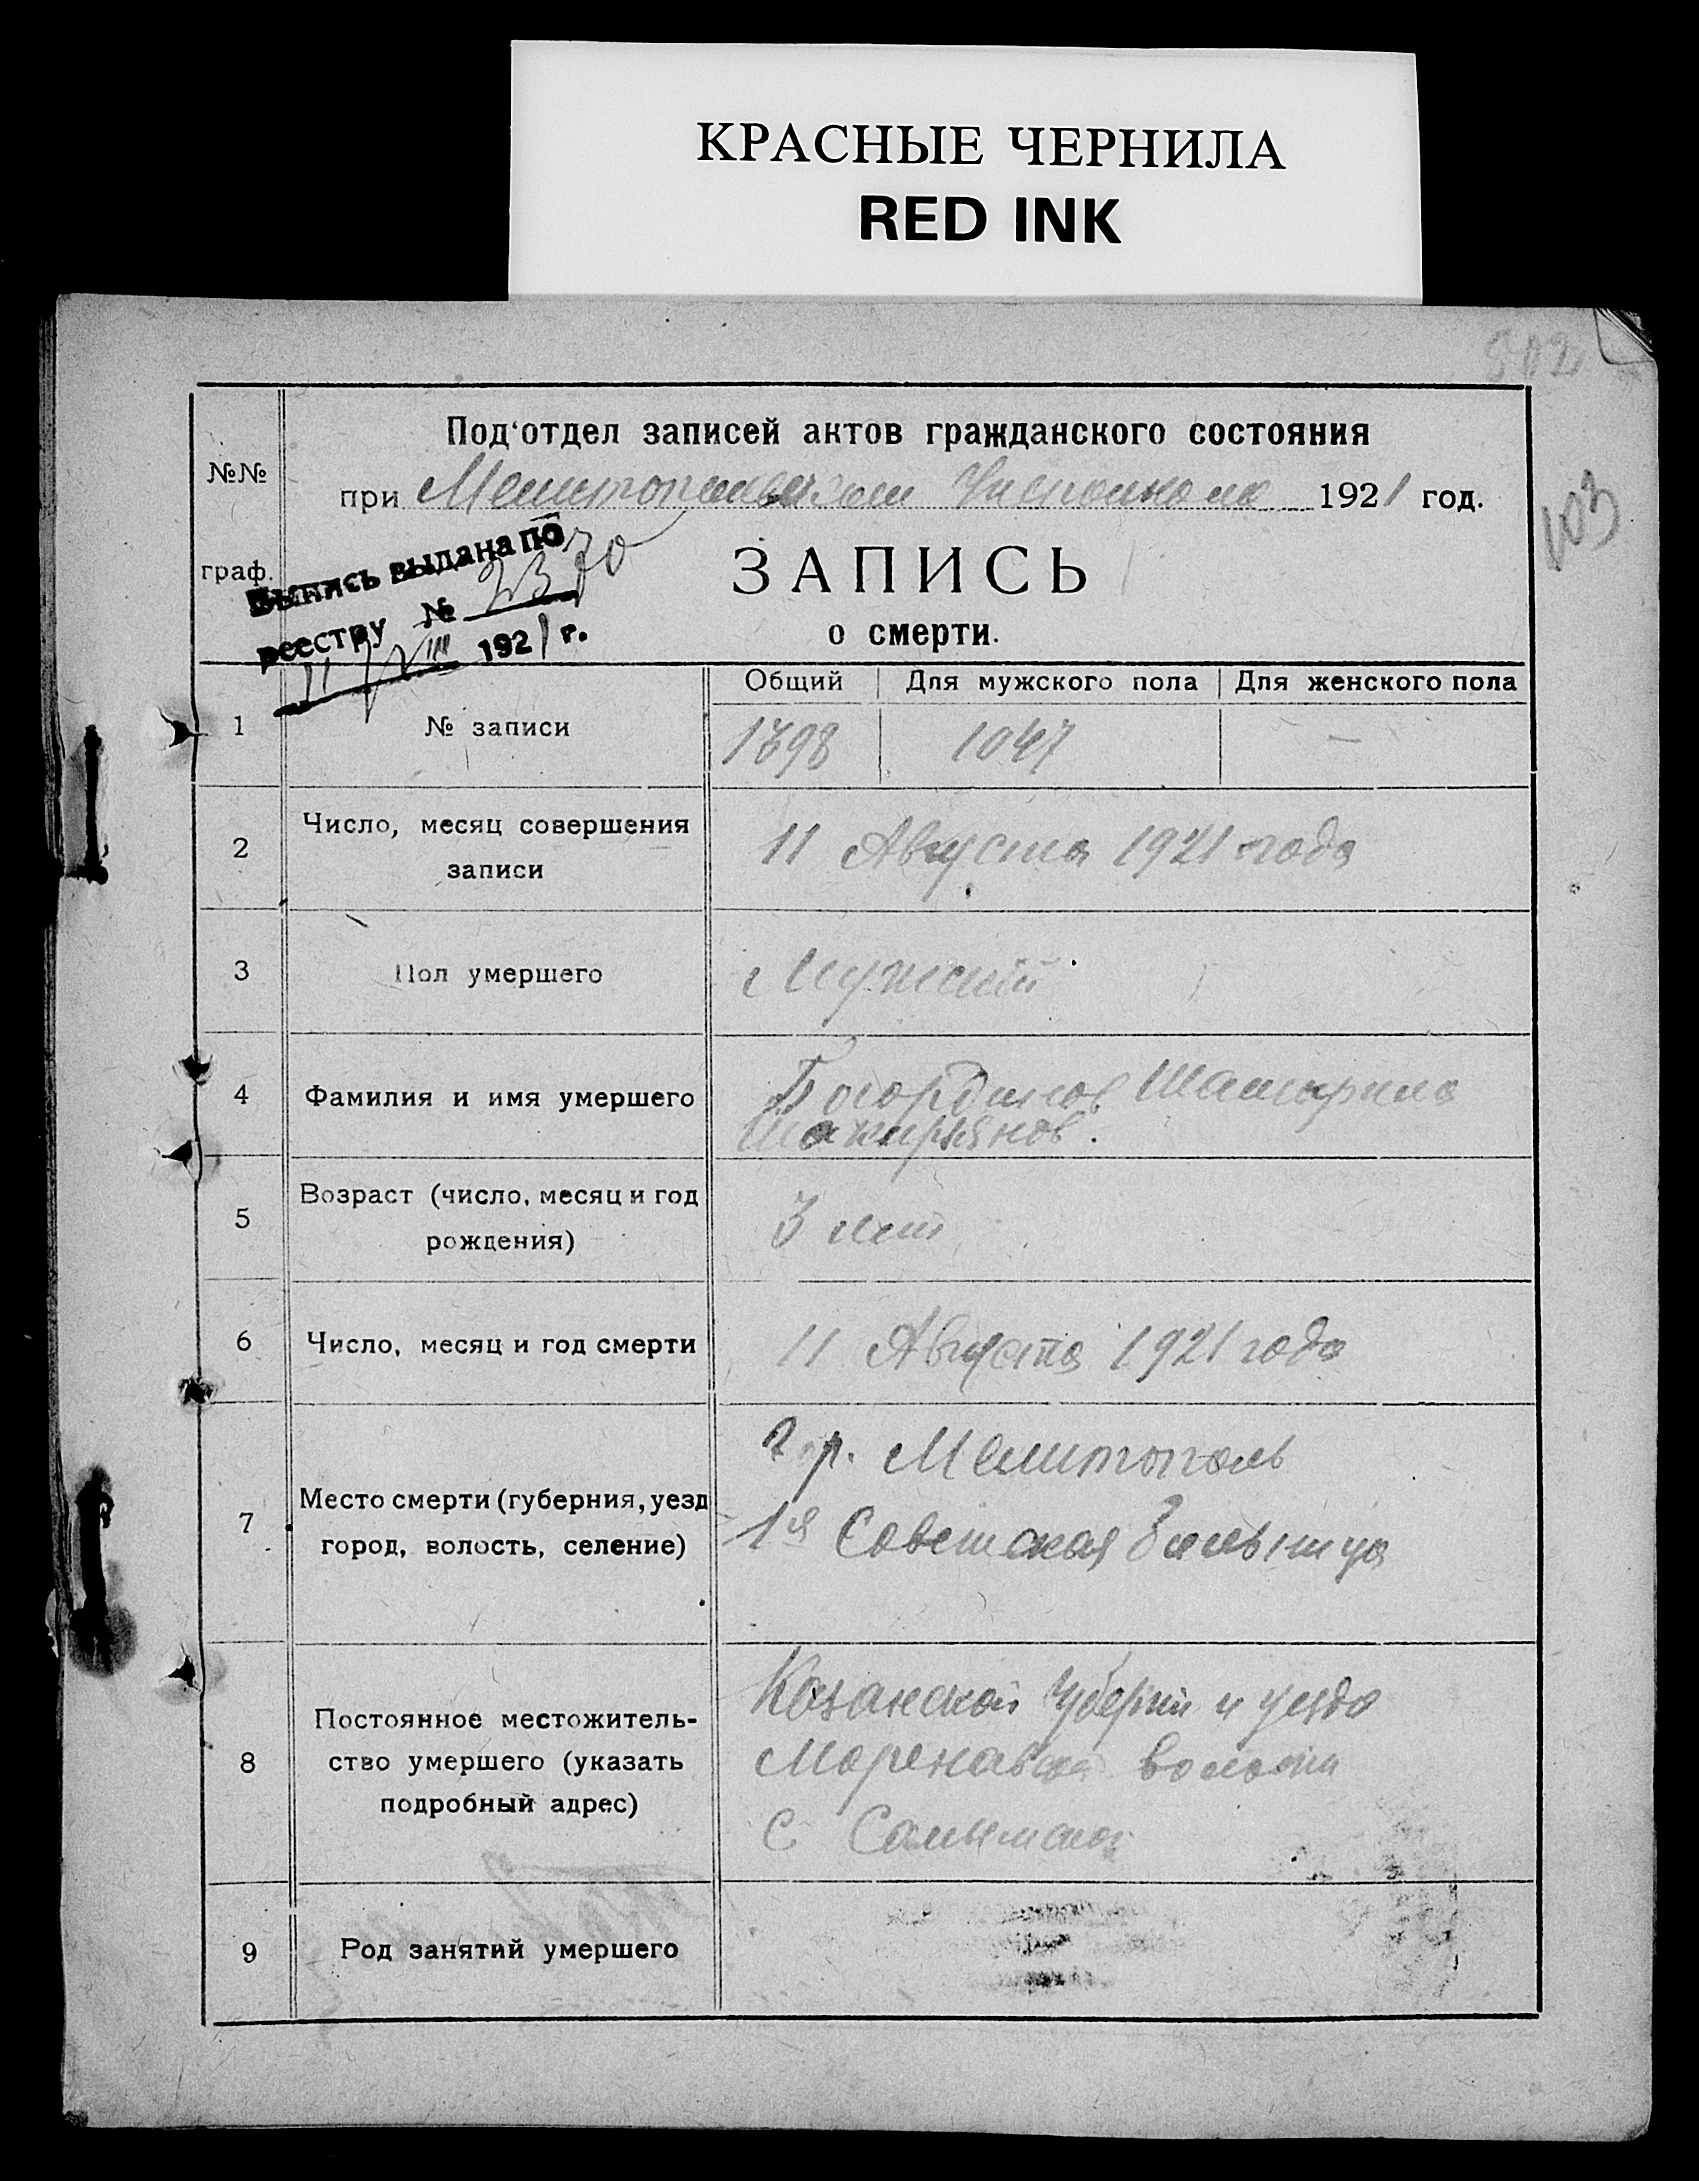 КРАСНЫЕ ЧЕРНИЛА
RED INK
502
103
Под'отдел записей актов гражданского состояния
№№
при Мелитопольском Исполкоме 1921 год.
граф.
Выпись выдана по
реестру № 2370
11/VIII 1921 г.
ЗАПИСЬ
о смерти.
Общий Для мужского пола Для женского пола
1 № записи 1898 1047 —
2 Число, месяц совершения
записи
11 Августа 1921 года
3 Пол умершего Мужской
4 Фамилия и имя умершего
Шакирьянов.
5 Возраст (число, месяц и год
рождения)
3 лет
6 Число, месяц и год смерти 11 Августа 1921 года
7 Место смерти (губерния, уезд
город, волость, селение)
гор. Мелитополь
1я Советская Больница
8 Постоянное местожитель-
ство умершего (указать
подробный адрес)
Казанской губернии и уезда
волости
с
9 Род занятий умершего